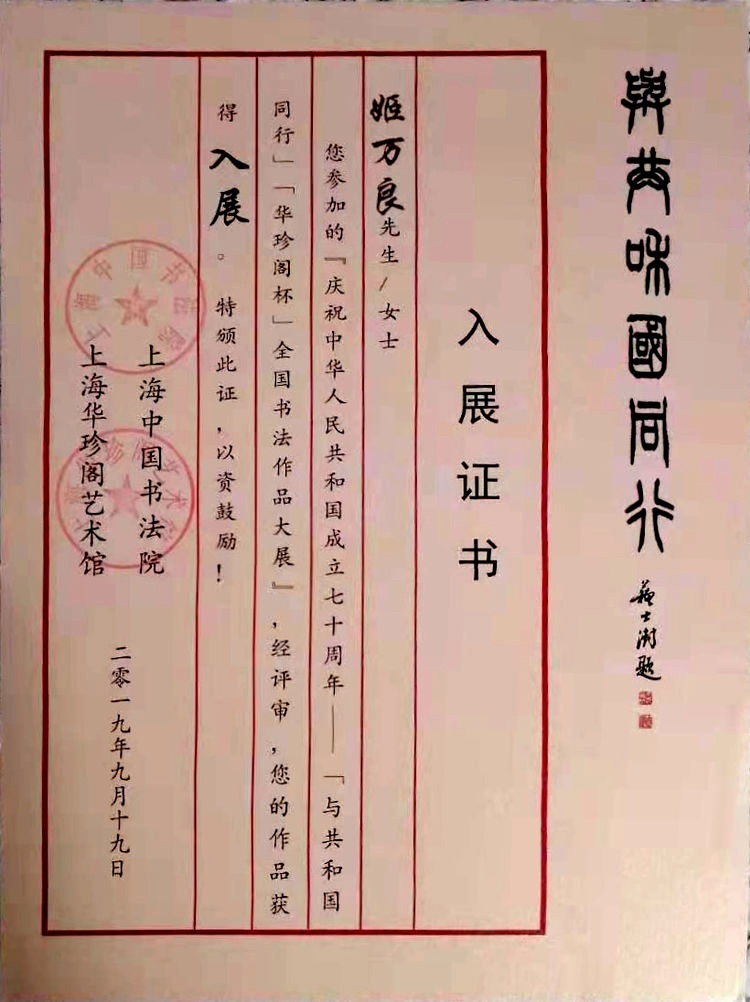 與共和國同行
苏士澍题
入展证书
姬万良先生/女士
您参加的『庆祝中华人民共和国成立七十周年——「与共和国
同行」「华珍阁杯」全国书法作品大展』，经评审，您的作品获
得入展。特颁此证，以资鼓励！
上海中国书法院
上海华珍阁艺术馆
二零一九年九月十九日
上海中国书法院